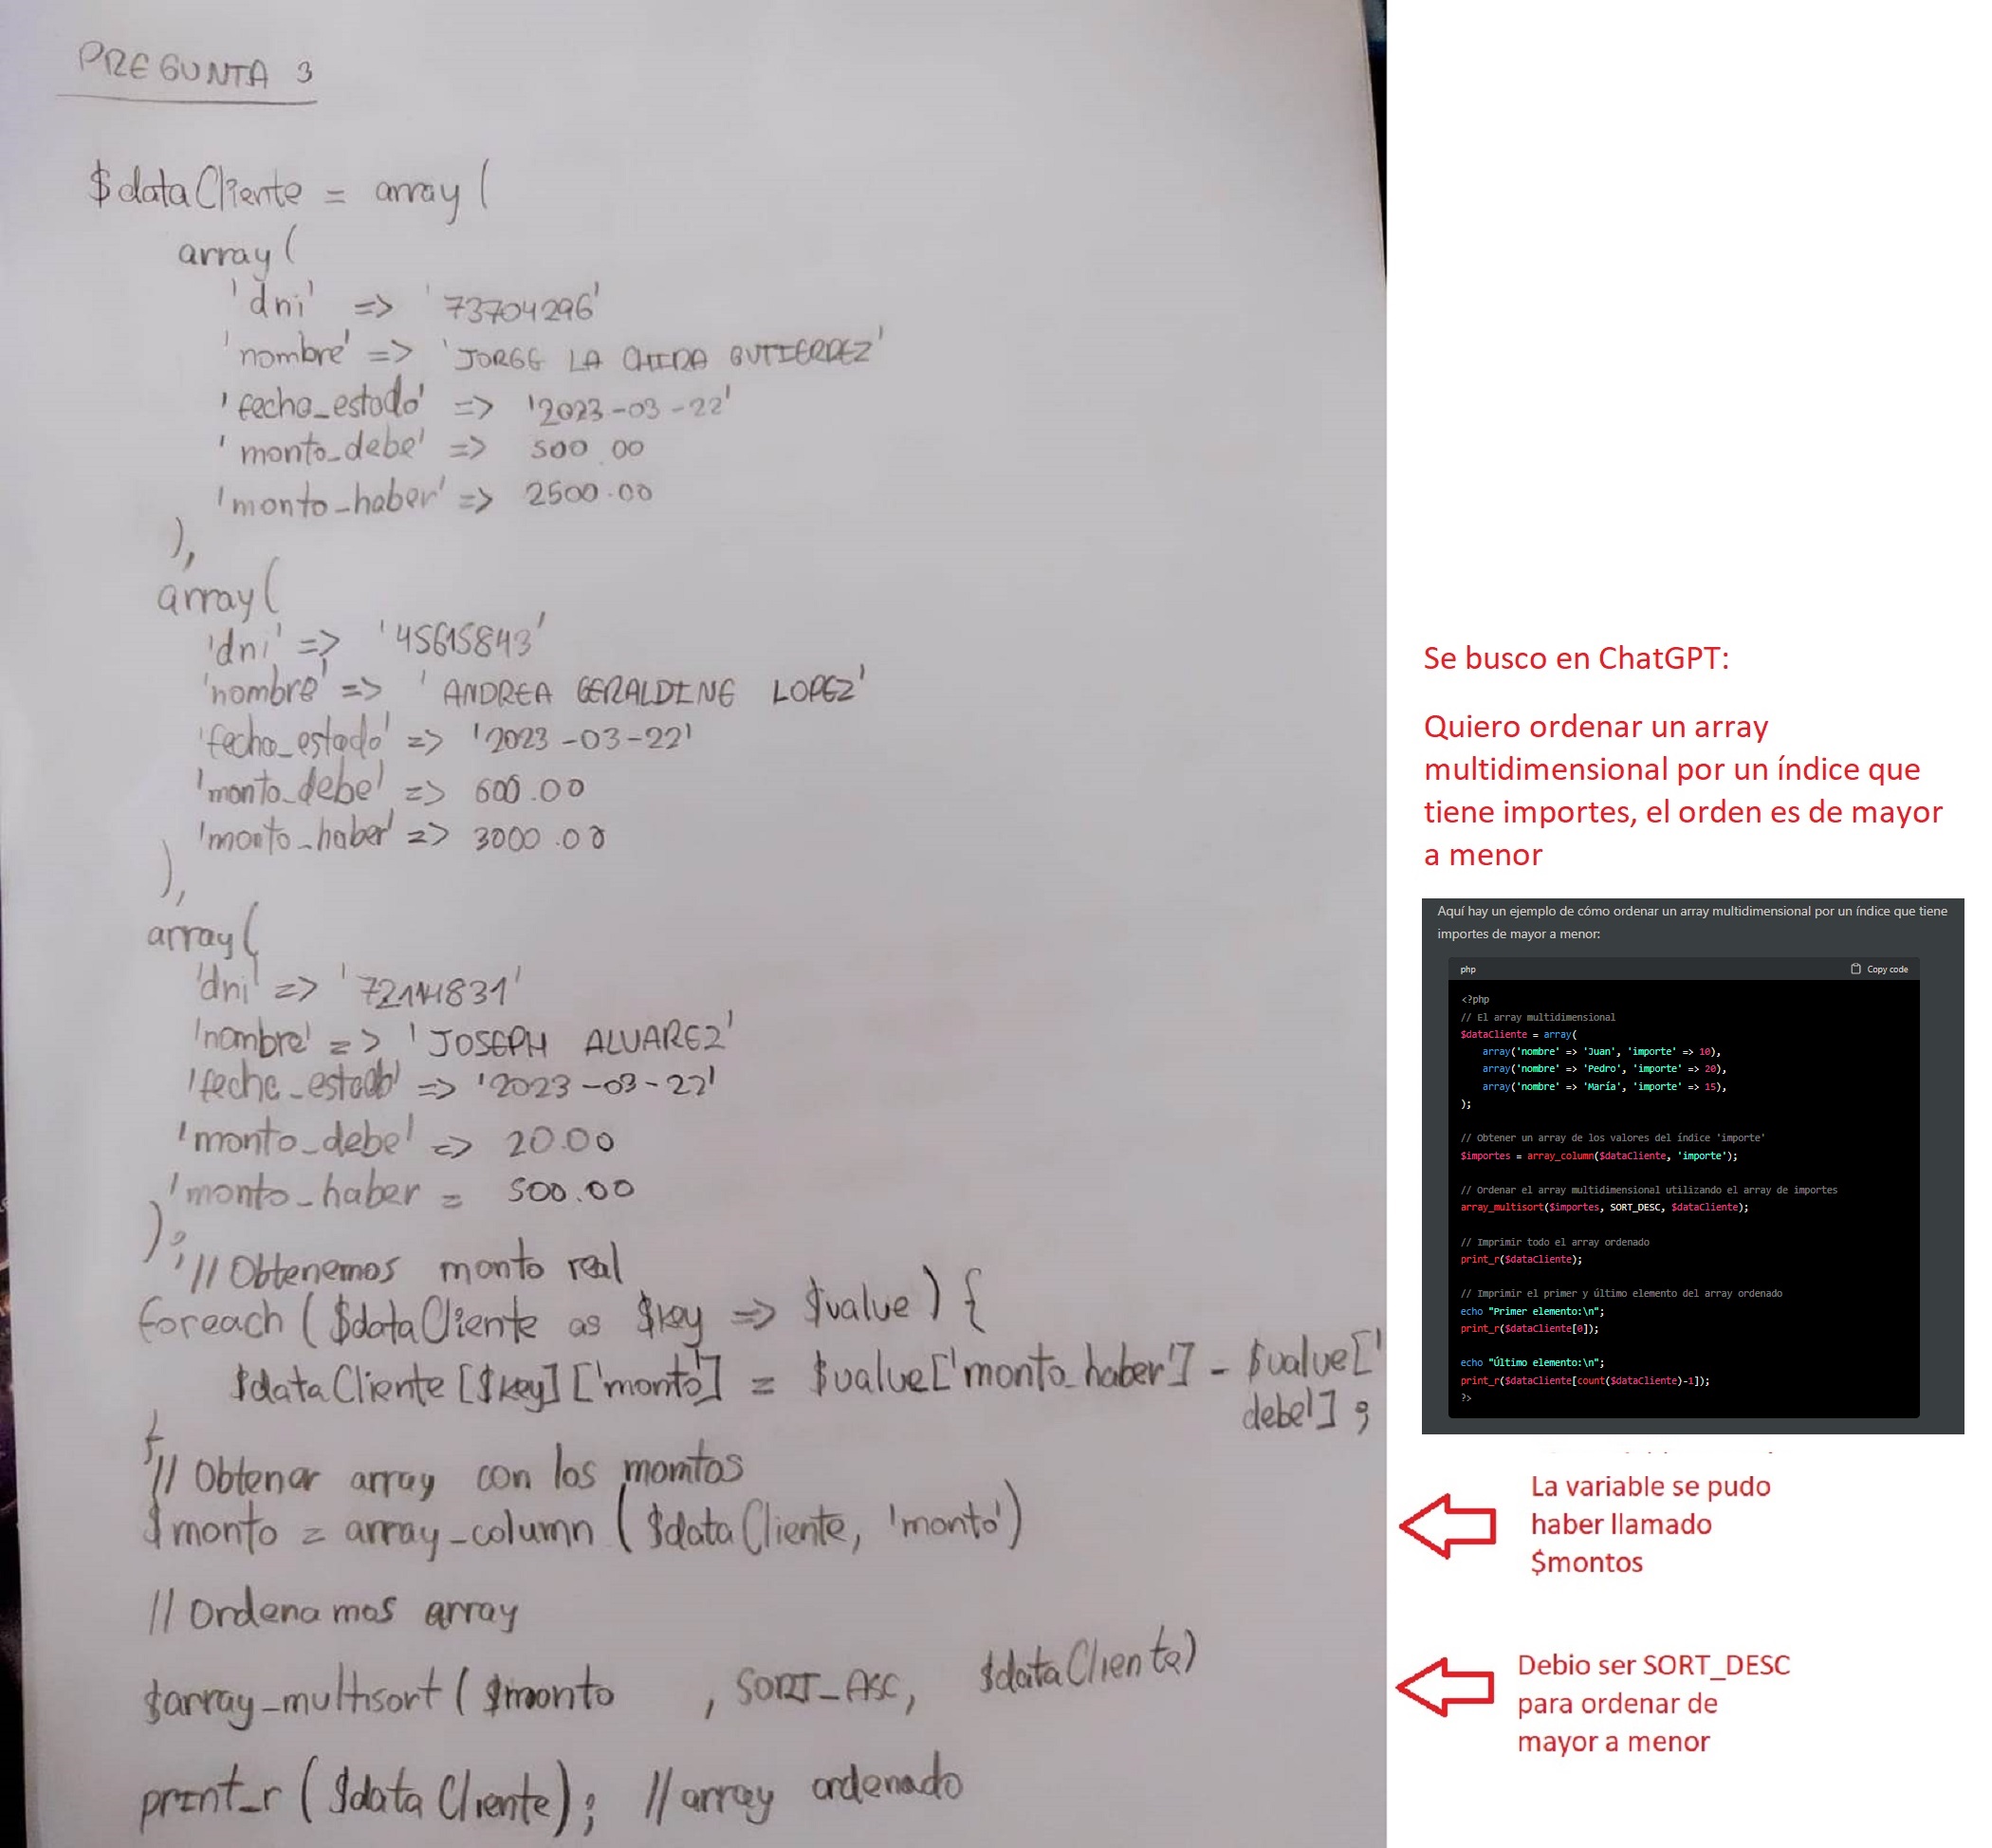 PREGUNTA 3
$dataCliente = array(
array(
'dni' => '73704296'
'nombre' => 'JORGE LA CHIRA GUTIERREZ'
'fecha_estado' => '2023-03-22'
'monto_debe' => 500.00
'monto_haber' => 2500.00
),
array(
'dni' => '45615843'
'nombre' => 'ANDREA GERALDINE LOPEZ'
'fecha_estado' => '2023-03-22'
'monto_debe' => 600.00
'monto_haber' => 3000.00
),
array(
'dni' => '72114831'
'nombre' => 'JOSEPH ALVAREZ'
'fecha_estado' => '2023-03-22'
'monto_debe' => 20.00
'monto_haber = 500.00
);
// Obtenemos monto real
foreach ($dataCliente as $key => $value) {
$dataCliente[$key]['monto'] = $value['monto_haber'] - $value['
debe'];
}
// Obtener array con los montos
$monto = array_column($dataCliente, 'monto')
// Ordenamos array
$array_multisort($monto , SORT_ASC, $dataCliente)
print_r($dataCliente); // array ordenado
Se busco en ChatGPT:
Quiero ordenar un array
multidimensional por un índice que
tiene importes, el orden es de mayor
a menor
Aquí hay un ejemplo de cómo ordenar un array multidimensional por un índice que tiene
importes de mayor a menor:
php Copy code
<?php
// El array multidimensional
$dataCliente = array(
array('nombre' => 'Juan', 'importe' => 10),
array('nombre' => 'Pedro', 'importe' => 20),
array('nombre' => 'María', 'importe' => 15),
);
// Obtener un array de los valores del índice 'importe'
$importes = array_column($dataCliente, 'importe');
// Ordenar el array multidimensional utilizando el array de importes
array_multisort($importes, SORT_DESC, $dataCliente);
// Imprimir todo el array ordenado
print_r($dataCliente);
// Imprimir el primer y último elemento del array ordenado
echo "Primer elemento:\n";
print_r($dataCliente[0]);
echo "Último elemento:\n";
print_r($dataCliente[count($dataCliente)-1]);
?>
La variable se pudo
haber llamado
$montos
Debio ser SORT_DESC
para ordenar de
mayor a menor